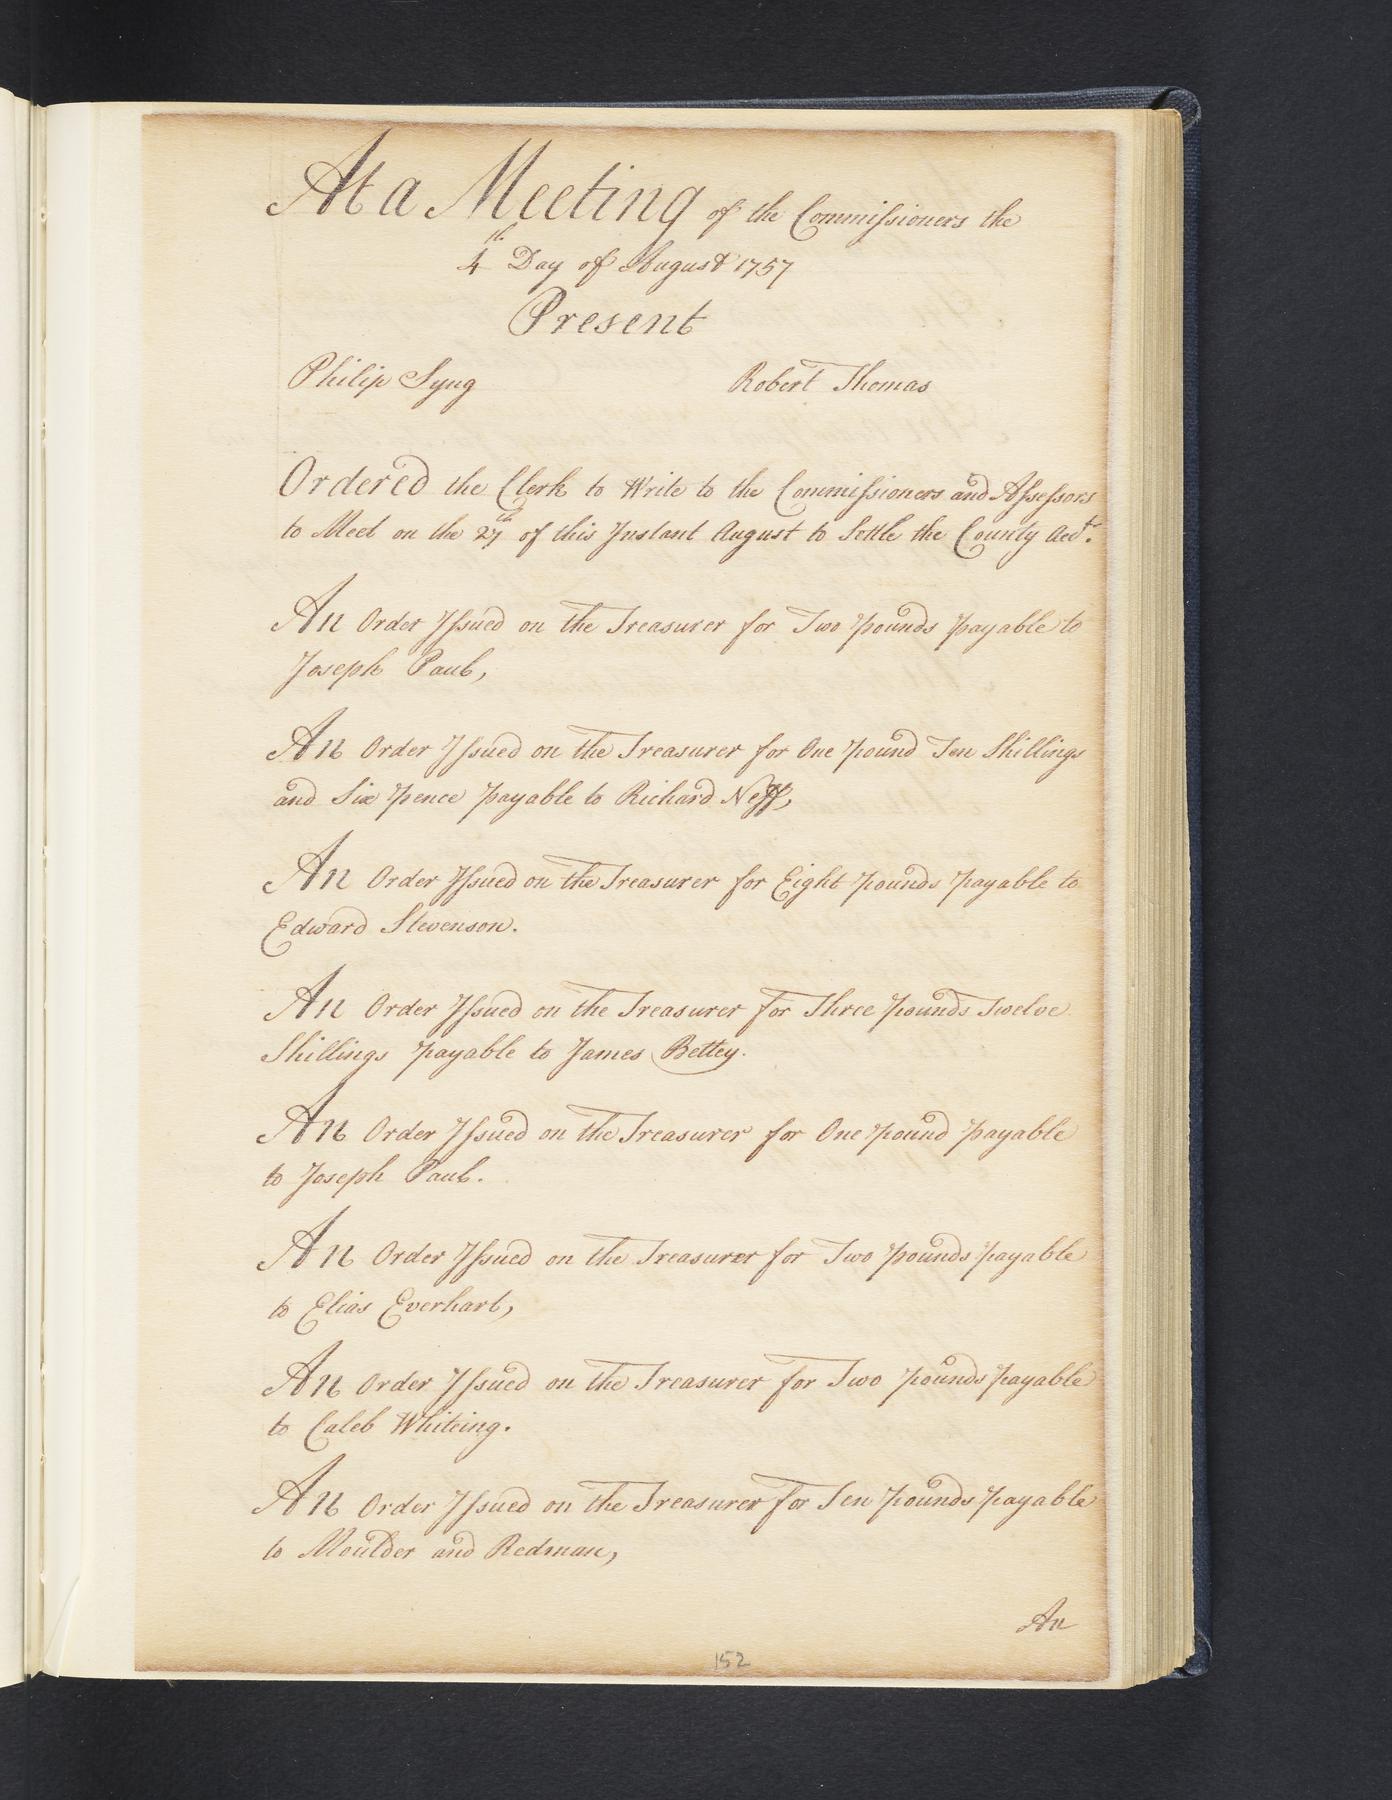 At a Meeting of the Commissioners the
4th Day of August 1757
Present
Philip Syng Robert Thomas
Ordered the Clerk to Write to the Commissioners and Assessors
to Meet on the 27th of this Instant August to Settle the County Acct.
An Order Issued on the Treasurer for Two pounds payable to
Joseph Paul,
An Order Issued on the Treasurer for One pound Ten Shillings
and Six pence payable to Richard Neff,
An Order Issued on the Treasurer for Eight pounds payable to
Edward Stevenson.
An Order Issued on the Treasurer for Three pounds Twelve
Shillings payable to James Bettey.
An Order Issued on the Treasurer for One pound payable
to Joseph Paul.
An Order Issued on the Treasurer for Two pounds payable
to Elias Everhart,
An Order Issued on the Treasurer for Two pounds payable
to Caleb Whiteing.
An Order Issued on the Treasurer for Ten pounds payable
to Moulder and Redman,
An
152